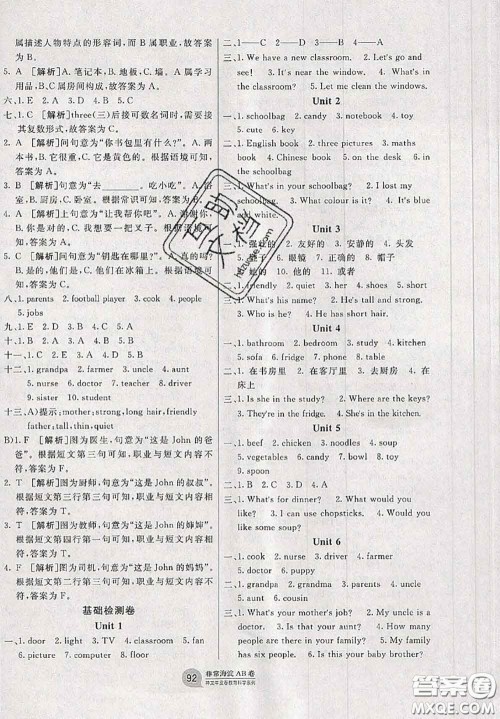 属描述人物特点的形容词,而B属职业,故答案
为B。
5. A [解析]A. 笔记本,B. 地板,C. 墙。A属学习
用品,B、C属房间构成,故答案为A。
六、1. B 2. A 3. D 4. C 5. E
七、1. C [解析]three(三)后接可数名词时,需要接
其复数形式,故答案为C。
2. A [解析]问句意为“你书包里有什么?”。A. 两
本书,B. 它很重,C. 它是黄色的。根据语境可知,
答案为A。
3. B [解析]句意为“去____吃小吃”。A. 卧
室,B. 厨房,C. 卧室。根据常识可知,答案为B。
4. A [解析]上句意为“让我帮你吧”。A. 谢谢你,
B. 你是我的,C. 你很好。根据语境可知,
答案为A。
5. C [解析]问句意为“钥匙在哪里?”A. 是的吗?
B. 他是我们的,C. 他们在冰箱上。根据语境可知,
答案为C。
八、1. parents 2. football player 3. cousin 4. people
5. jobs
九、1. B 2. D 3. A 4. C
十、1. C 2. E 3. A 4. B 5. D
十一、1. grandpa 2. farmer 3. uncle 4. aunt
5. cook 6. doctor 7. teacher 8. driver
9. sister 10. student
十二、A)提示:mother; strong; long hair, friendly
father; tall, thin, quiet
B)1. F [解析]图为医生,句意为“这是John的爸
爸”。根据短文第三句可知,职业与短文内容不
符,答案为F。
2. T [解析]图为厨师,句意为“这是John的叔叔”。
根据短文第三行第三句可知,职业与短文内容相
符,故答案为T。
3. T [解析]图为教师,句意为“这是John的婶婶”。
根据短文第四行第一句可知,职业与短文内容相
符,故答案为T。
4. F [解析]图为司机,句意为“这是John的妈妈”。
根据短文第二行第三句可知,职业与短文内容不
符,故答案为F。
基础检测卷
Unit 1
一、1. door 2. light 3. TV 4. classroom 5. fan
6. wall 7. picture 8. floor
92
非常海淀AB卷
二、1.——C 2.——D 3.——A 4.——B
三、1. We have a new classroom. 2. Let's go and
see! 3. This is the new classroom. 4. Let's clean
the classroom! 5. It's near the window.
6. Let me clean the windows.
Unit 2
一、1. schoolbag 2. candy 3. notebook 4. toy
5. cute 6. key
二、1. English book 2. three keys 3. storybook
4. maths book 5. on the floor 6. fat panda
7. Chinese book 8. on the desk 9. in the
schoolbag
三、1. What's in your schoolbag?
2. An English book, a maths book, three
storybooks and… 3. What colour is it? 4. It's blue
and white.
Unit 3
一、1. 强壮的 2. 友好的 3. 安静的 4. 头发
5. 鞋子 6. 眼镜 7. 正确的 8. 帽子
9. 她的 10. 他的
二、1. friendly 2. quiet 3. shoe 4. hair
三、1. What's his name? 2. He's tall and strong.
3. Who is he? 4. He has short hair.
Unit 4
一、1. bathroom 2. bedroom 3. kitchen 4. table
5. sofa 6. fridge 7. phone 8. bed
二、1. 在书房里 2. 在餐桌上 3. 去厨房 4. 在
床上
三、1. Is she in the study? 2. Where are the keys?
3. They're in the fridges. 4. She's in the kitchen.
Unit 5
一、1. beef 2. chicken 3. noodles 4. soup
5. vegetable 6. candy 7. boy 8. toy
9. spoon
二、1. What's for dinner? 2. What would you
like? 3. I'd like some soup and bread, please.
4. Would you like a knife and fork?
Unit 6
一、1. cook 2. nurse 3. driver 4. farmer
5. doctor 6. China 7. parents
二、1. grandpa 2. grandma 3. parents 4. aunt
5. uncle 6. cousin
三、1. What's your mother's job? 2. What's your
aunt's job? 3. Is this your uncle?
4. My family has six people. 5. That's only five.